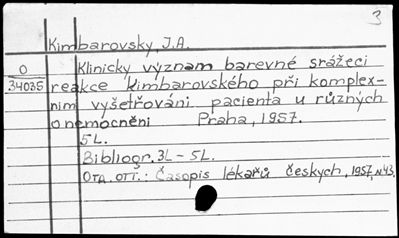 3
Kimbarovsky, J.A.
O Klinicky význam barevné srážeci
34035 reakce Kimbarovského při komplex-
nim vyšetřováni pacienta u různých
onemocněni Praha, 1957.
5L.
Bibliogr. 3L - 5L.
Отд. отт.: Časopis lékařů českych, 1957, N43.